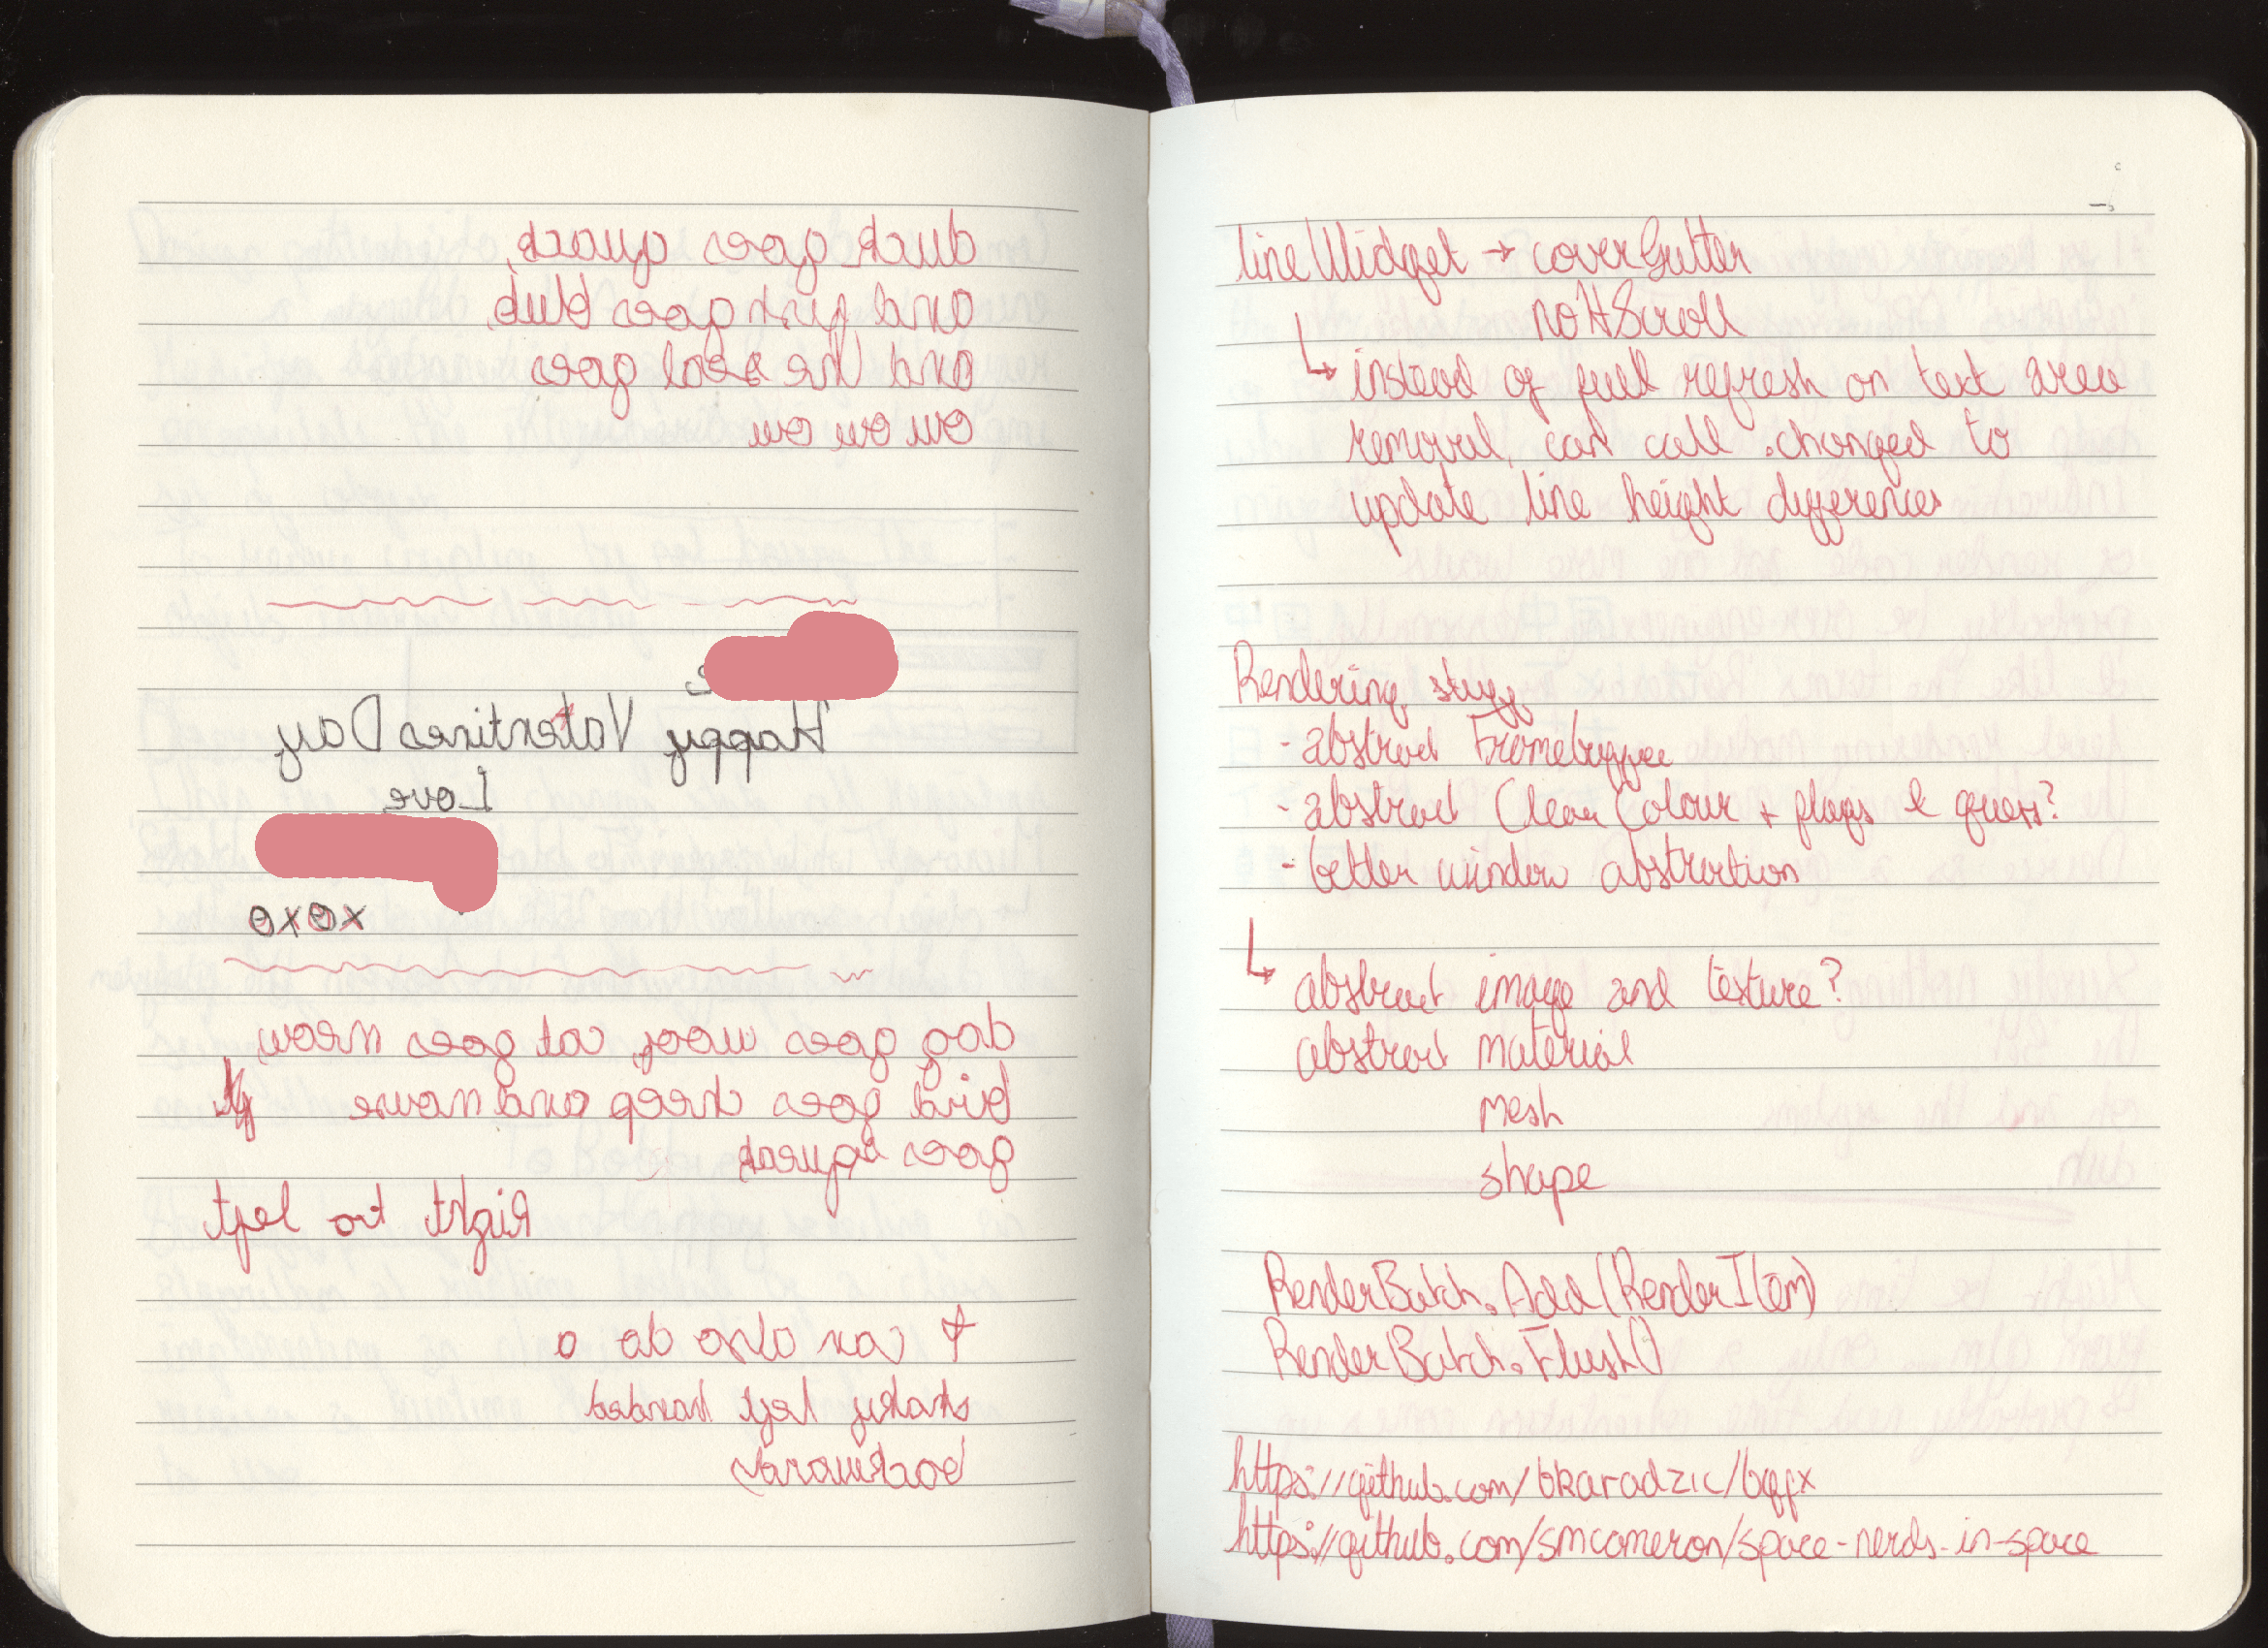 duck goes quack,
and fish goes blub,
and the seal goes
ow ow ow
Happy Valentines Day
Love
xoxo
dog goes woof, cat goes meow,
bird goes cheep and mouse
goes squeak
Right to left
I can also do a
shaky left handed
backwards
line Widget → coverGutter
noHScroll
↳ instead of full refresh on text area
removal, can call .changed to
update line height differences
Rendering stuff
- abstract Framebuffer
- abstract Clear Colour + flags I guess?
- better window abstraction
↳ abstract image and texture?
abstract material
mesh
shape
RenderBatch.Add(RenderItem)
RenderBatch.Flush()
https://github.com/bkaradzic/bgfx
https://github.com/smcameron/space-nerds-in-space